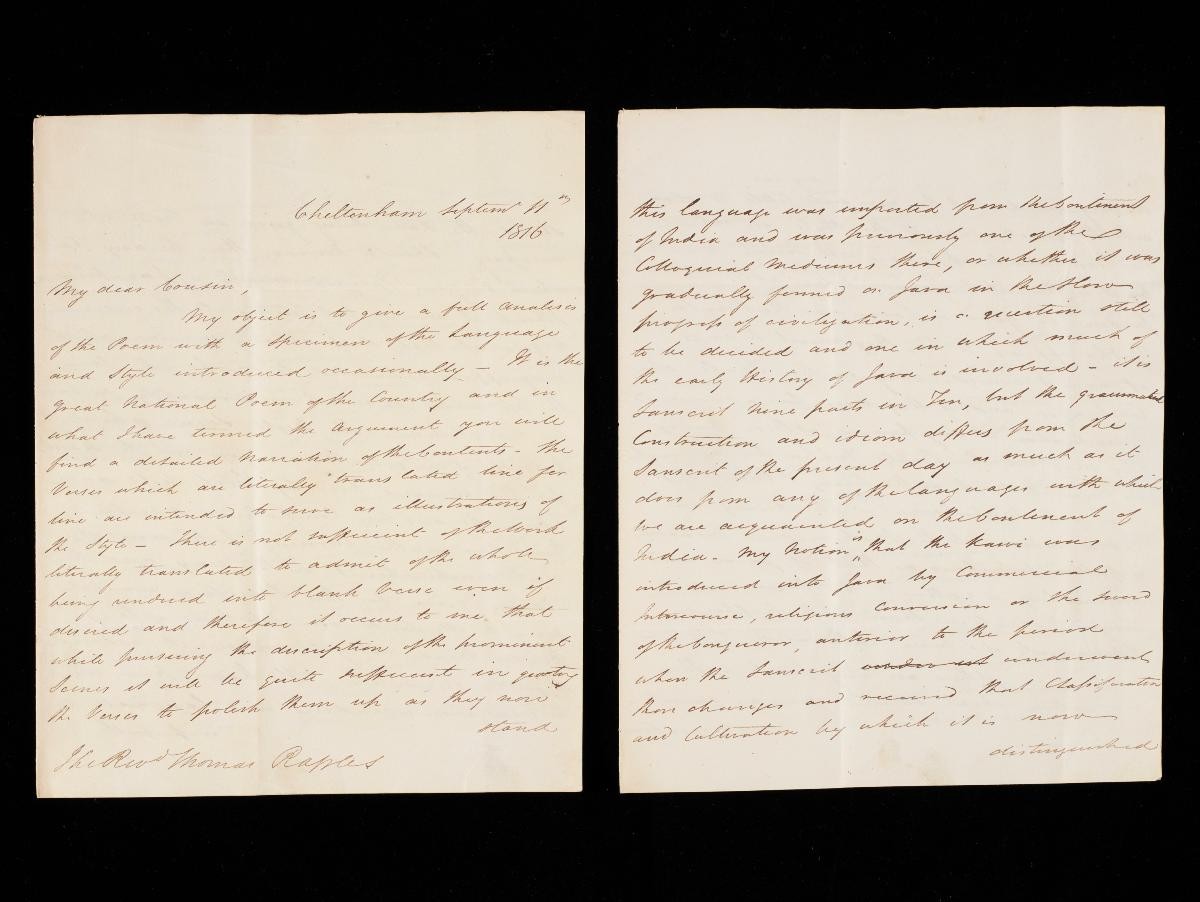 Cheltenham Septemr 11th
1816
My dear Cousin,
My object is to give a full analisis
of the Poem with a specimen of the Language
and Style introduced occasionally – It is the
great National Poem of the Country and in
what I have termed the Argument you will
find a detailed narration of the Contents – The
Verses which are literally translated line for
line are intended to serve as illustrations of
the Style – There is not sufficient of the Work
literally translated to admit of the whole
being rendered into blank Verse even if
desired and therefore it occurs to me that
while pursuing the description of the prominent
Scenes it will be quite sufficient in quoting
the Verses to polish them up as they now
stand
The Revd Thomas Raffles
this language was imported from the Continent
of India and was previously one of the
Colloquial mediums there, or whether it was
gradually formed on Java in the slow
progress of civilization, is a question still
to be decided and one in which much of
the early History of Java is involved – it is
Sanscrit Nine parts in Ten, but the grammatical
Construction and idiom differs from the
Sanscrit of the present day as much as it
does from any of the languages with which
we are acquainted on the Continent of
India – My Notion is that the Kawi was
introduced into Java by Commercial
Intercourse, religious Conversion or the sword
of the Conqueror, anterior to the period
when the Sanscrit underwent
those changes and received that Classification
and Cultivation by which it is now
distinguished